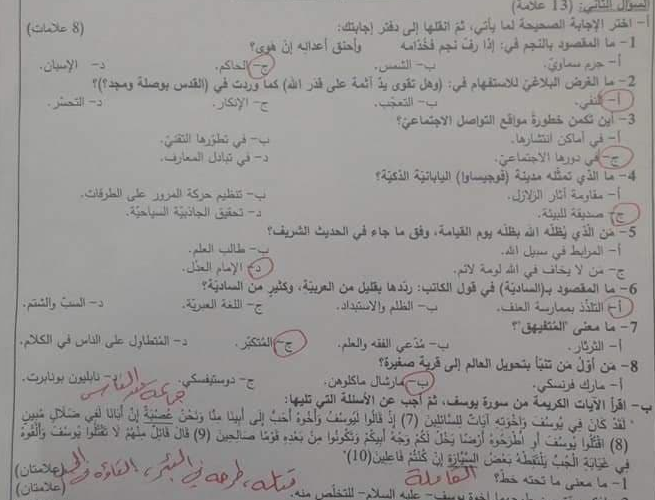 السؤال الثاني: (13 علامة)
أ- اختر الإجابة الصحيحة لما يأتي، ثمّ انقلها إلى دفتر إجابتك: (8 علامات)
1- ما المقصود بالنجم في: إذا رفّت نجم فخُدّامه وأحنق أعدائه إنْ هَوى؟
أ- جرم سماويّ. ب- الشمس. ج- الحاكم. د- الإنسان.
2- ما الغرض البلاغيّ للاستفهام في: (وهل تقوى يدُ أئمة على قدَر الله) كما وردت في (القدس بوصلة ومجد؟)؟
أ- النفي. ب- التعجّب. ج- الإنكار. د- التحسّر.
3- أين تكمن خطورة مواقع التواصل الاجتماعيّ؟
أ- في أماكن انتشارها. ب- في تطوّرها التقنيّ.
ج- في دورها الاجتماعيّ. د- في تبادل المعارف.
4- ما الذي تمثّله مدينة (فوجيساوا) اليابانيّة الذكيّة؟
أ- مقاومة آثار الزلازل. ب- تنظيم حركة المرور على الطرقات.
ج- صديقة للبيئة. د- تحقيق الجاذبيّة السياحيّة.
5- مَن الّذي يُظلّه الله بظلّه يوم القيامة، وفق ما جاء في الحديث الشريف؟
أ- المرابط في سبيل الله. ب- طالب العلم.
ج- من لا يخاف في الله لومة لائم. د- الإمام العدْل.
6- ما المقصود بـ(الساديّة) في قول الكاتب: ربّدها بقليل من العربيّة، وكثيرٍ من الساديّة؟
أ- التلذّذ بممارسة العنف. ب- الظلم والاستبداد. ج- اللغة العبريّة. د- السبّ والشتم.
7- ما معنى "المُتفيهق"؟
أ- الثرثار. ب- مُدّعي الفقه والعلم. ج- المُتكبّر. د- المُتطاول على الناس في الكلام.
8- من أوّل مَن تنبّأ بتحويل العالم إلى قرية صغيرة؟
أ- مارك فرنسكي. ب- مارشال ماكلوهن. ج- دوستيفسكي. د- نابليون بونابرت.
ب- اقرأ الآيات الكريمة من سورة يوسف، ثمّ أجب عن الأسئلة التي تليها:
"لَقَدْ كَانَ فِي يُوسُفَ وَإِخْوَتِهِ آيَاتٌ لِلسَّائِلِينَ (7) إِذْ قَالُوا لَيُوسُفُ وَأَخُوهُ أَحَبُّ إِلَى أَبِينَا مِنَّا وَنَحْنُ عُصْبَةٌ إِنَّ أَبَانَا لَفِي ضَلَالٍ مُبِينٍ
(8) اقْتُلُوا يُوسُفَ أَوِ اطْرَحُوهُ أَرْضًا يَخْلُ لَكُمْ وَجْهُ أَبِيكُمْ وَتَكُونُوا مِنْ بَعْدِهِ قَوْمًا صَالِحِينَ (9) قَالَ قَائِلٌ مِنْهُمْ لَا تَقْتُلُوا يُوسُفَ وَأَلْقُوهُ
فِي غَيَابَةِ الْجُبِّ يَلْتَقِطْهُ بَعْضُ السَّيَّارَةِ إِنْ كُنْتُمْ فَاعِلِينَ (10)"
القافلة
1- ما معنى ما تحته خطّ؟ (علامتان)
قتله، طرحه في البئر، القاؤه في الجب
إخوة يوسف -عليه السلام- للتخلّص منه. (علامتان)